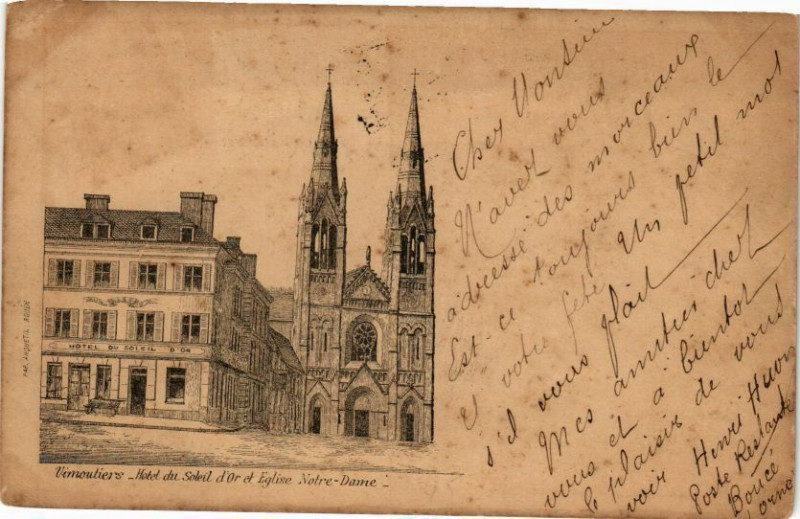 HOTEL DU SOLEIL D'OR
Vimoutiers - Hotel du Soleil d'Or et Eglise Notre-Dame -
Cher Monsieur
N'avez vous
adressé des morceaux
Est-ce toujours bien le
votre fête Un petit mot
s'il vous plait
Mes amitiés chez
vous et à bientôt
le plaisir de vous
voir Henri Huon
Poste Restante
Boucé
Orne